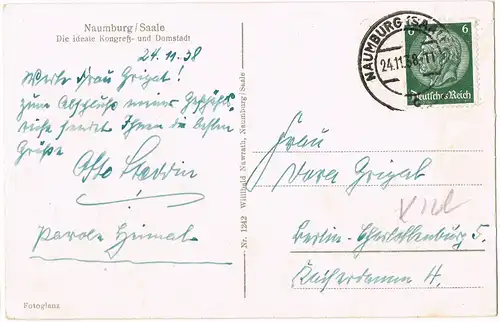 Naumburg/Saale
Die ideale Kongreß- und Domstadt
24.11.38
Werte Frau Grigat!
Zum Abschluß meiner Geschäfts-
reise sendet Ihnen die besten
Grüße
Otto
Parole Heimat
Fotoglanz
Nr. 1242 Willibald Nawrath, Naumburg/Saale
NAUMBURG (SAALE)
24.11.38
6 6
Deutsches Reich
Frau
Dora Grigat
Berlin-Charlottenburg 5.
4.